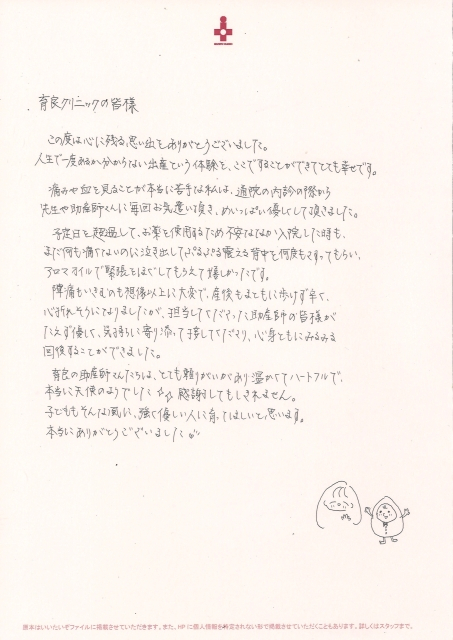 育良クリニックの皆様
この度は心に残る思い出をありがとうございました。
人生で一度あるか分からない出産という体験を、ここですることができてとても幸せです。
痛みや血を見ることが本当に苦手な私は、通院の内診の際から
先生や助産師さんに毎回お気遣い頂き、めいっぱい優しくして頂きました。
予定日を超過して、お薬を使用するため不安ななか入院した時も、
まだ何も痛くないのに泣き出してぷるぷる震える背中を何度もさすってもらい、
アロマオイルで緊張をほぐしてもらえて嬉しかったです。
陣痛もいきむのも想像以上に大変で、産後もまともに歩けず辛く、
心折れそうになりましたが、担当してくださった助産師の皆様が
たえず優しく、気持ちに寄り添って接してくださり、心身ともにみるみる
回復することができました。
育良の助産師さんたちは、とても頼りがいがあり温かくてハートフルで、
本当に天使のようでした 感謝してもしきれません。
子どももそんな風に、強く優しい人に育ってほしいと思います。
本当にありがとうございました
原本はいいたいぞファイルに掲載させていただきます。また、HPに個人情報を特定されない形で掲載させていただくこともあります。詳しくはスタッフまで。